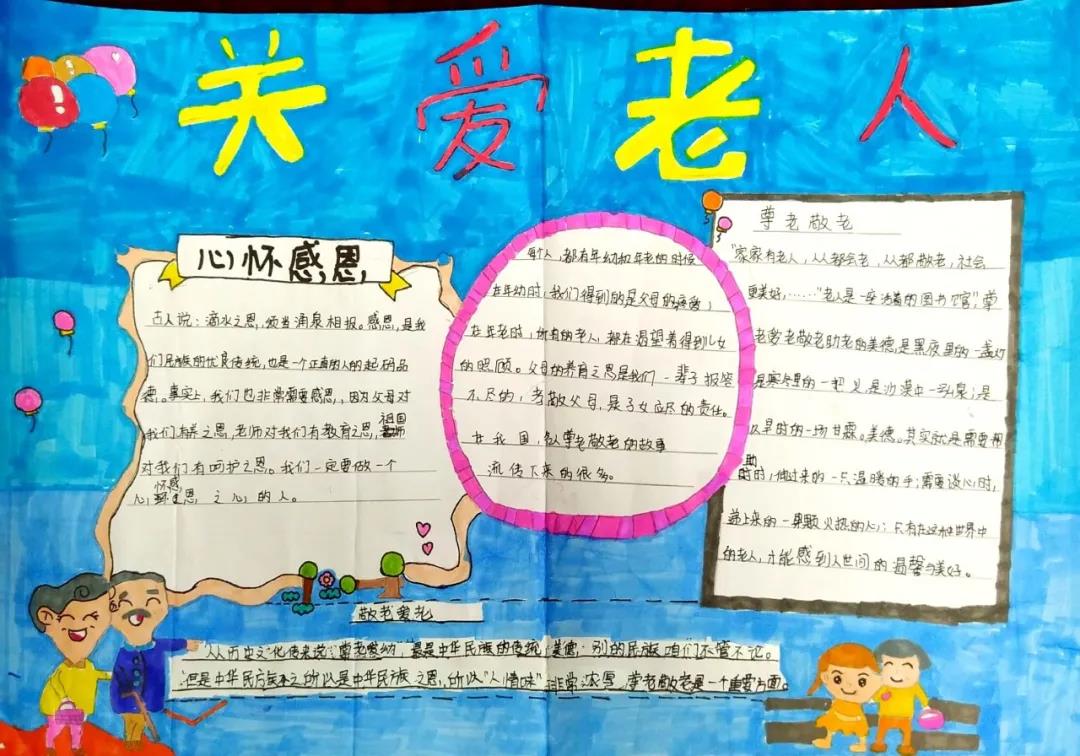 关爱老人
心怀感恩
古人说：滴水之恩，须当涌泉相报。感恩，是我
们民族的优良传统，也是一个正直的人的起码品
德。事实上，我们也非常需要感恩，因为父母对
我们有养之恩，老师对我们有教育之恩，祖国
对我们有呵护之恩。我们一定要做一个
心怀感恩之心的人。
每个人，都有年幼和年老的时候
在年幼时，我们得到的是父母的疼爱；
在年老时，所有的老人，都在渴望着得到儿女
的照顾。父母的养育之恩是我们一辈子报答
不尽的，孝敬父母，是子女应尽的责任。
在我国，名人尊老敬老的故事
流传下来的很多。
尊老敬老
"家家有老人，人人都会老，人人都敬老，社会
更美好，……"老人是一座活着的图书馆"，尊
老爱老敬老助老的美德，是黑夜里的一盏灯
是寒冬里的一把火是沙漠中一环泉；是
旱时的一场甘霖。美德。其实就是需要帮
助时，伸过来的一只温暖的手；需要谈心时，
递上来的一颗火热的心；只有在这种世界中
的老人，才能感到人世间的温馨与美好。
敬老爱老
"从历史文化传来说"尊老爱幼"，是中华民族的传统美德；别的民族咱们不管不论。
但是中华民族之所以是中华民族之恩，所以"人情味"非常浓厚，尊老敬老是一个重要方面。